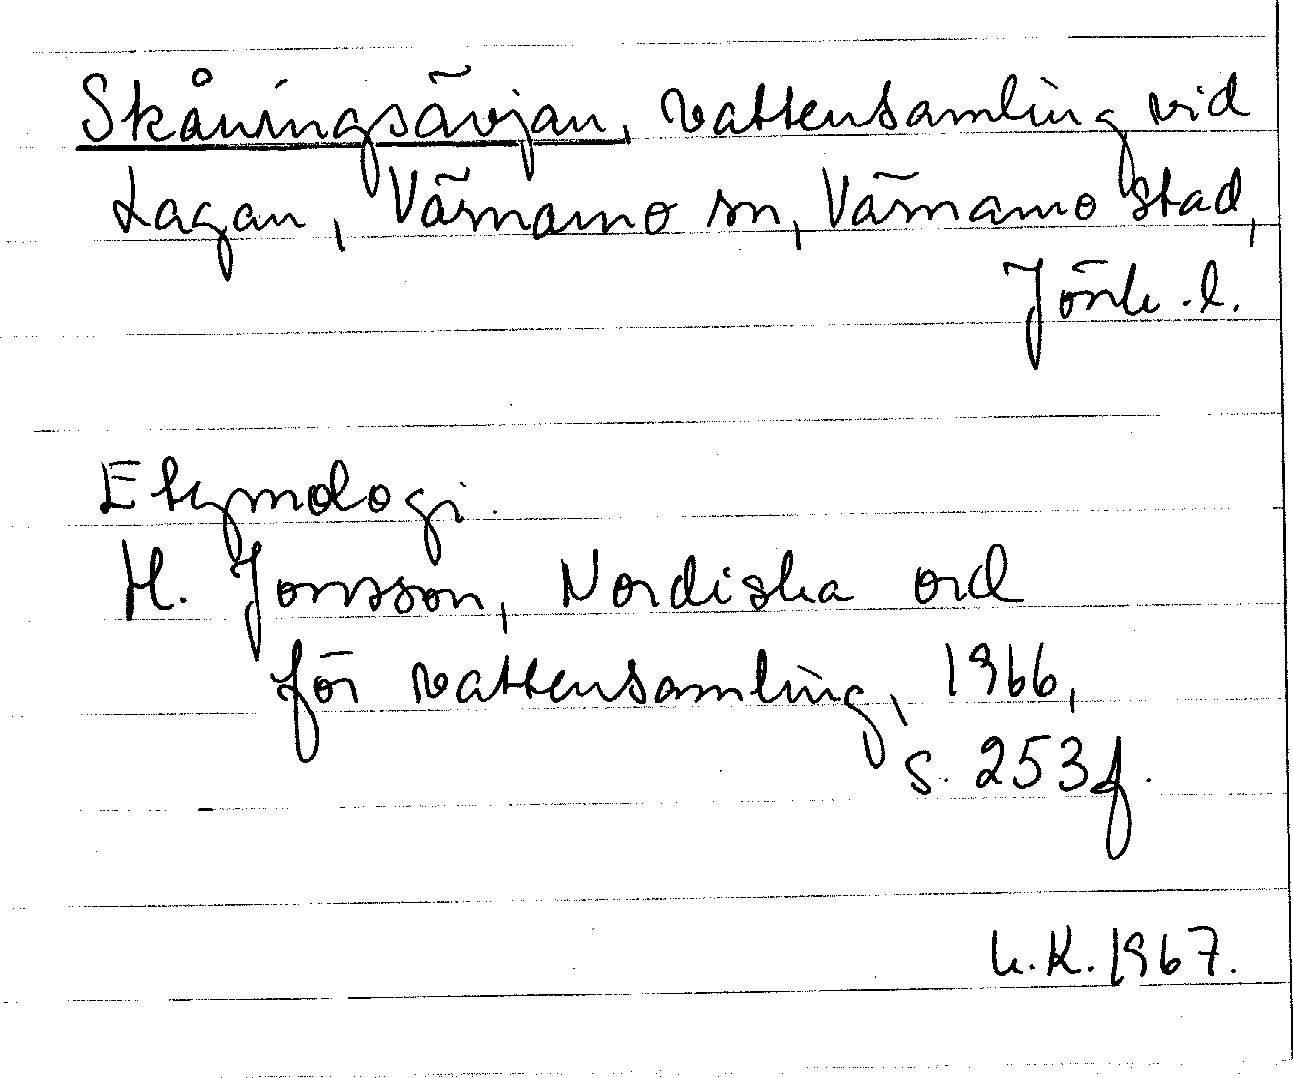 Skåningsävjan, vattensamling vid
Lagan, Värnamo sn, Värnamo stad,
Jönk. l.
Etymologi.
H. Jonsson, Nordiska ord
för vattensamling, 1966,
s. 253f.
K. 1967.